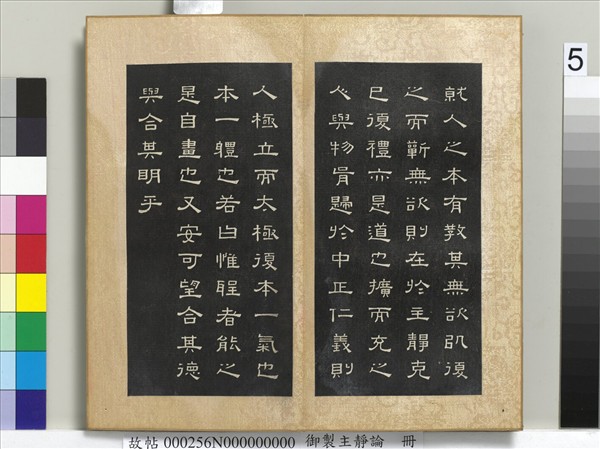 就人之本有教其無欲即復
之而蘄無欲則在於主靜克
已復禮亦是道也擴而充之
人與物胥歸於中正仁義則
人極立而太極復本一氣也
本一軆也若曰惟聖者能之
是自畫也又安可望合其德
與合其明乎
5
故帖 000256N000000000 御製主靜論 冊